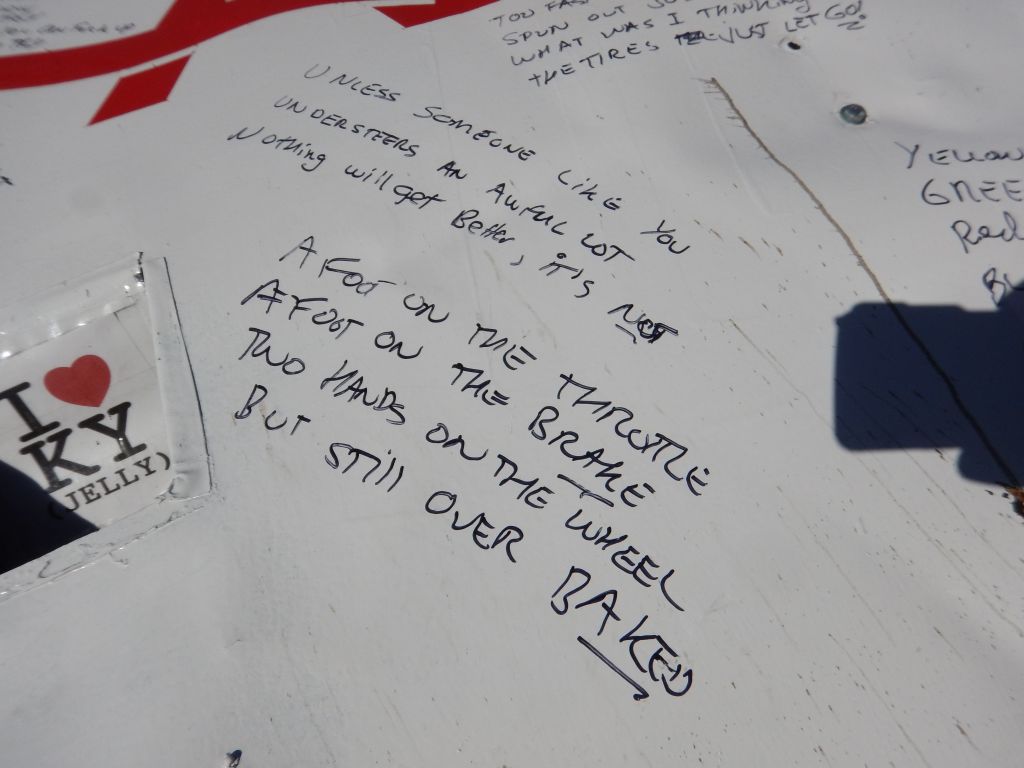 TOO FAS
SPUN OUT
WHAT WAS I THINKING
THE TIRES JUST LET GO!
UNLESS SOMEONE LIKE YOU
UNDERSTEERS AN AWFUL LOT
Nothing will get Better, it's NOT
A FOOT ON THE THROTTLE
A FOOT ON THE BRAKE
TWO HANDS ON THE WHEEL
BUT STILL OVER BAKED
YELLOW
GREE
Red
BL
I ♥
KY
(JELLY)